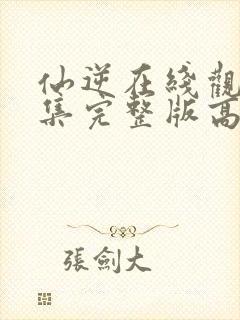 仙逆在綫觀
集完整版高
張劍大